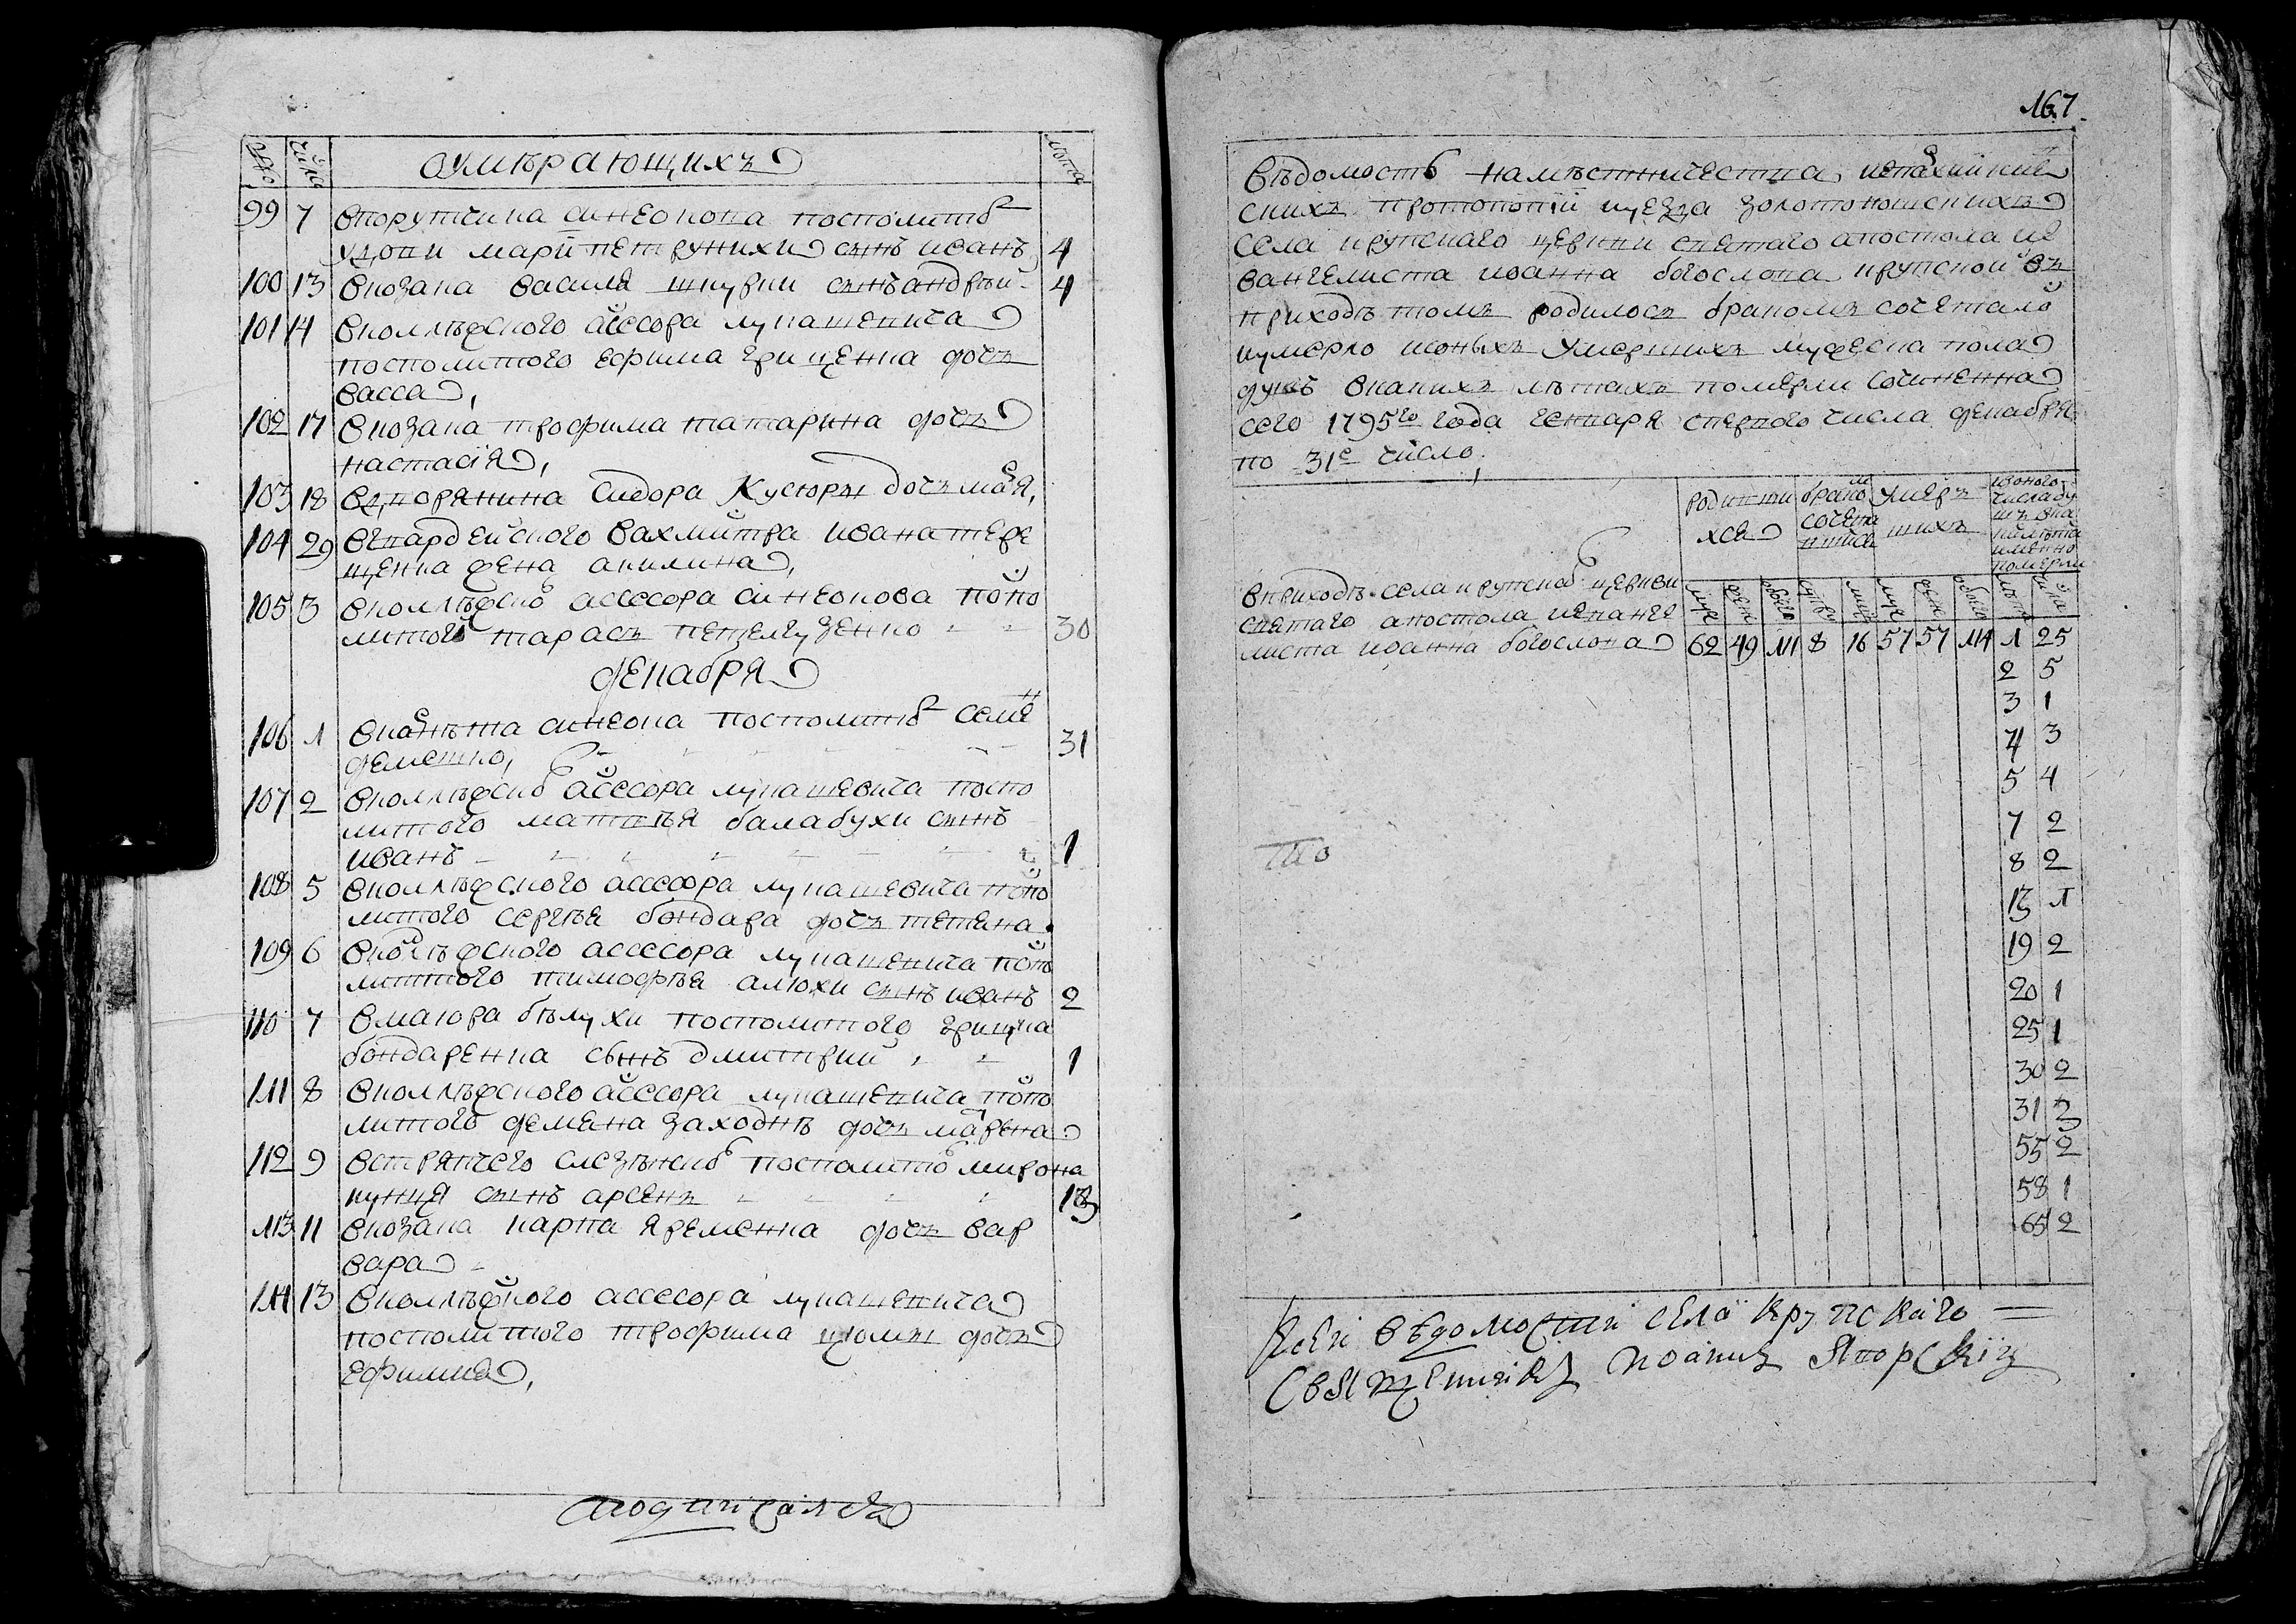 число
лѣта
о умѣрающихъ
99 7 в порутчика синеокова посполитой
удови марии петрунихи сынъ иванъ 4
100 13 в козака василя шкурки сынъ андрѣй 4
101 14 в коллѣжского асессора лукашевича
посполитого ефима грищенка дочъ
васса,
102 17 в козака трофима татарина дочъ
настасія,
103 18 в дворянина Сидора Кусюры дочъ
104 29 в гвардейского вахмистра ивана тере
щенка жена акилина,
105 3 в коллѣжского асессора синеокова поспо
литого тарасъ 30
декабря
106 1 синеока посполитого
демешко, 31
107 2 в коллѣжского асессора лукашевича поспо
литого матвѣя балабухи сынъ
иванъ 1
108 5 в коллѣжского асессора лукашевича поспо
литого сергѣя бондара дочъ тетяна
109 6 в коллѣжского асессора лукашевича поспо
литого тимофѣя алюхи сынъ иванъ 2
110 7 в маіора бѣлухи посполитого грицка
бондаренка сынъ дмитрий 1
111 8 в коллѣжского асессора лукашевича поспо
литого демяна заходнѣ дочъ марена
112 9 в стряпчего посполитого мирона
кунця сынъ арсенъ 13
113 11 в козака карпа яременка дочъ вар
вара
114 13 в коллѣжского асессора лукашевича
посполитого трофима дочъ
ефимия,
подписался
167
Вѣдомость намѣстничества и епархии кіев
скихъ протопопіи и уезда золотоношскихъ
села крупского церкви святаго апостола и е
вангелиста иоанна богослова крупской въ
приходѣ томъ родилось бракомъ сочеталось
и умерло и оныхъ умершихъ мужеска пола
душъ в какихъ лѣтахъ померли сочиненна
сего 1795го года генваря с первого числа декабря
по 31е число.
родивши
хся
бракомъ
сочета
вшихся
умер
шихъ
из оного
числа ду
шъ в ка
кихъ лѣта
именно
померли
муж жен обоего муж муж жен обоего лѣта число
в приходѣ села крупского церкви
святаго апостола и еванге
листа иоанна богослова 62 49 111 8 16 57 57 114 1 25
2 5
3 1
4 3
5 4
7 2
8 2
13 1
19 2
20 1
25 1
30 2
31 3
55 2
58 1
65 2
К сей вѣдомости села крупскаго
Священникъ Иоаннъ Яворскій